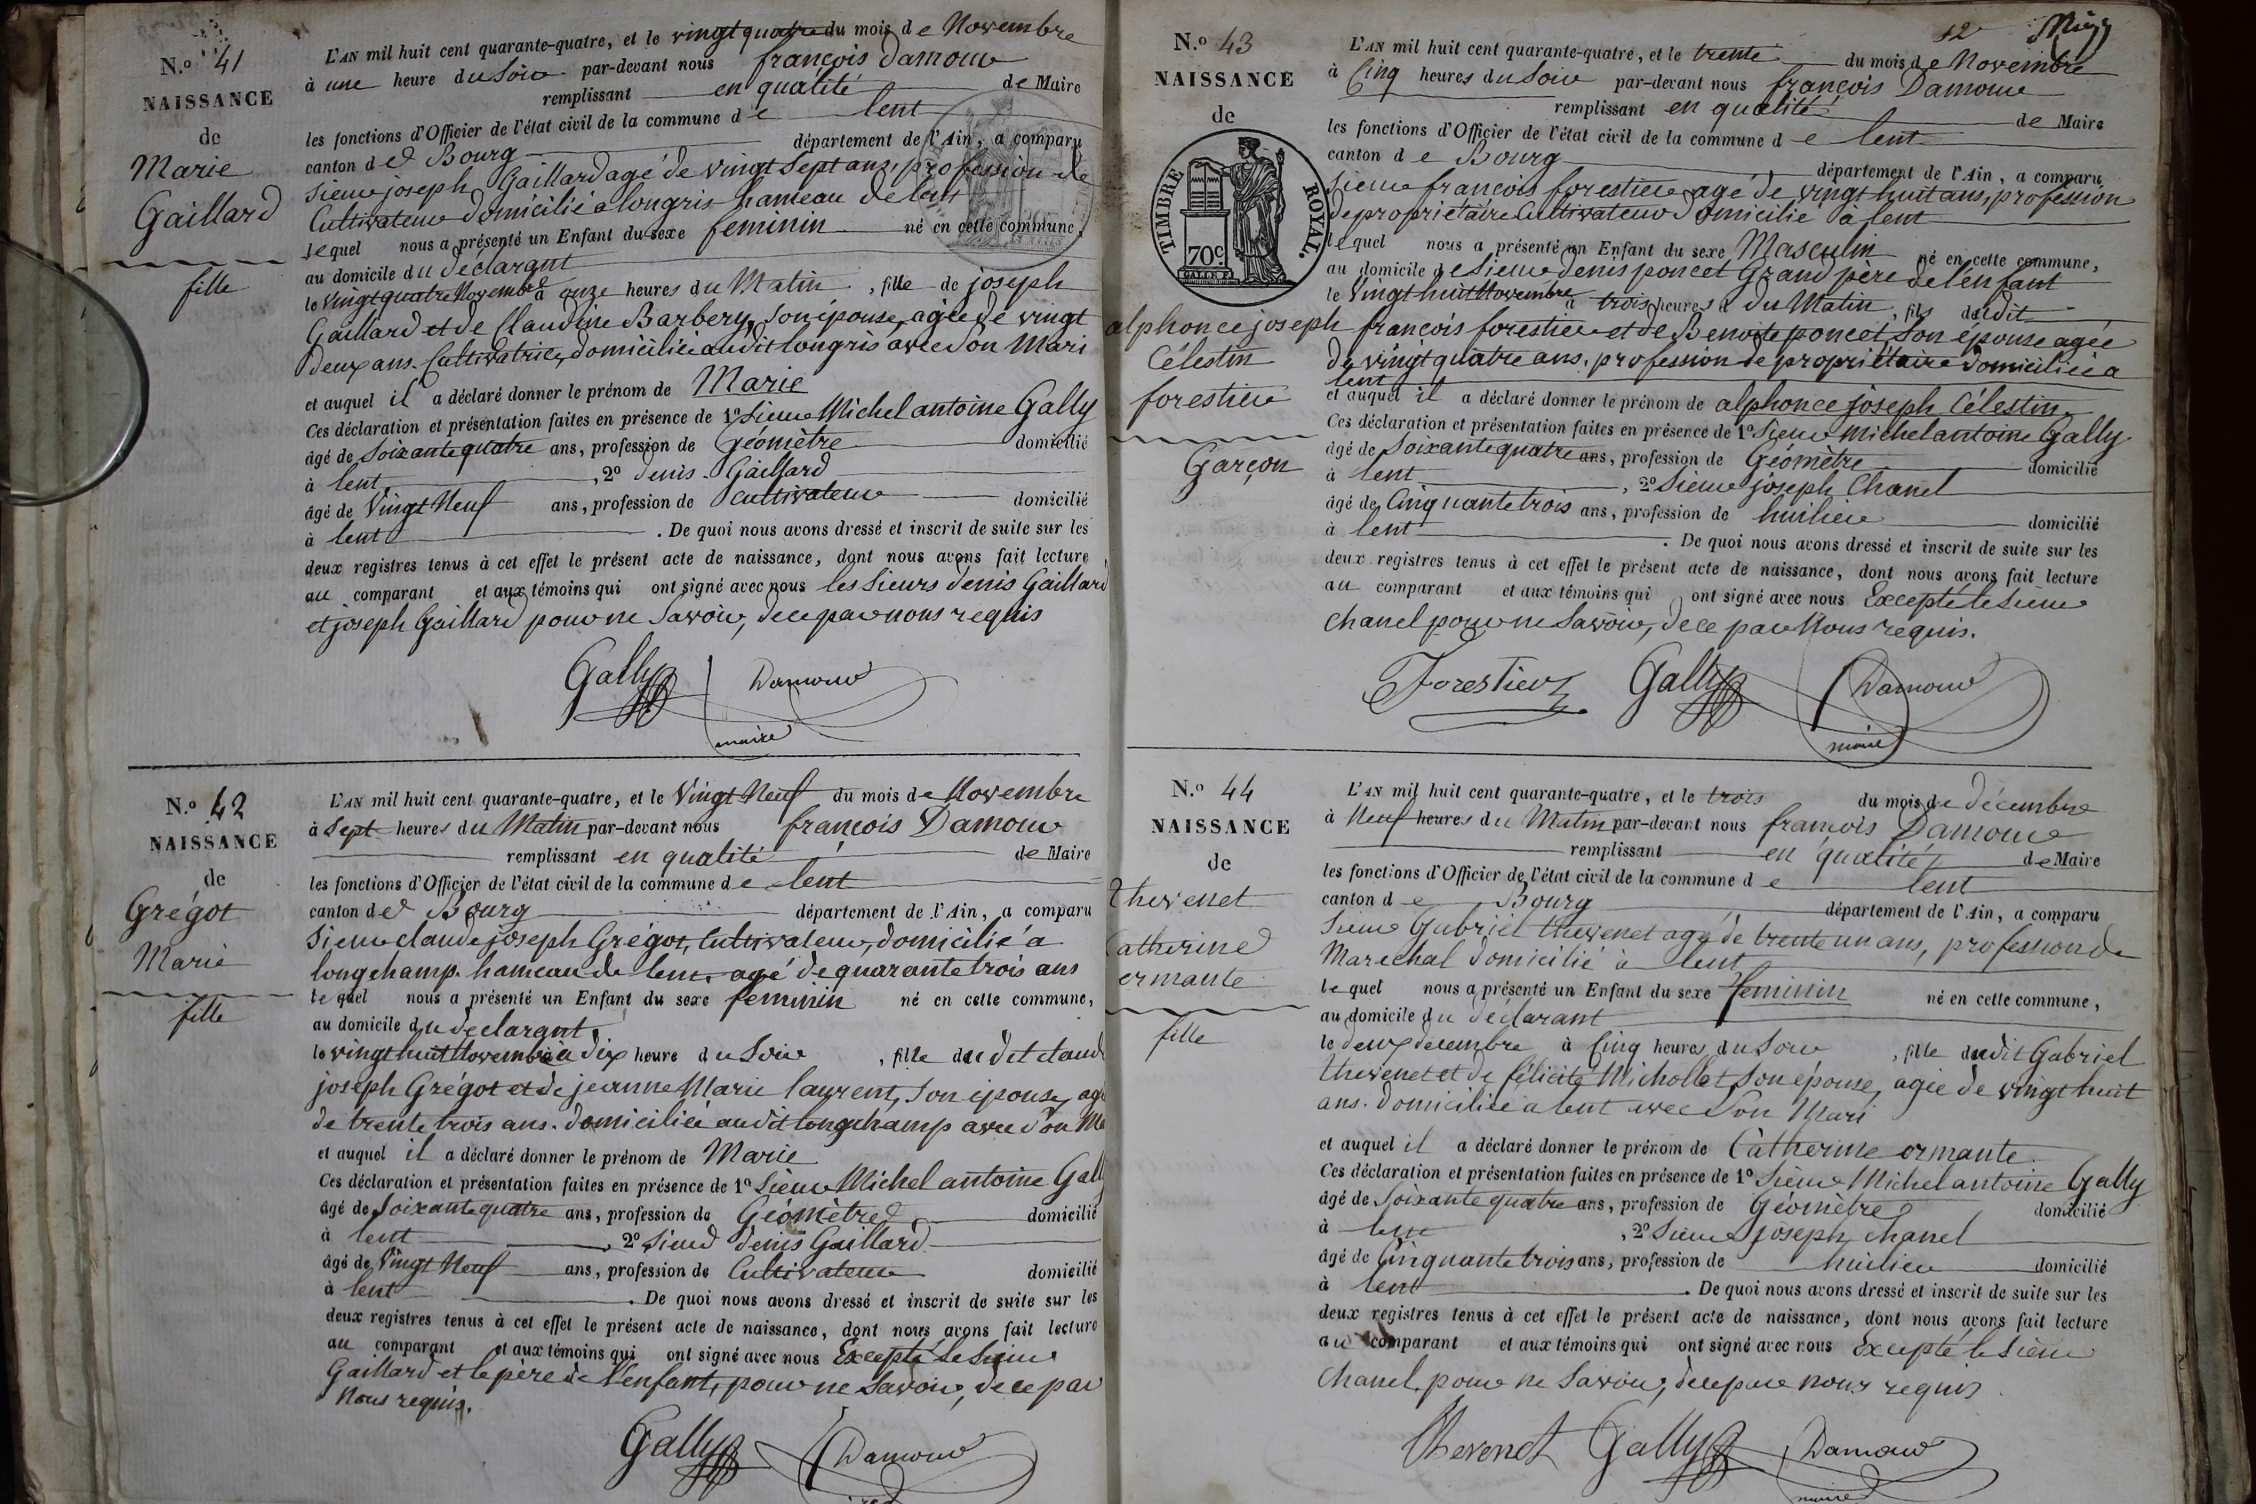 N.o 41
NAISSANCE
de
Marie
Gaillard
fille
L'AN mil huit cent quarante-quatre, et le vingt quatre du mois de Novembre
à une heure du Soir par-devant nous françois Damour
remplissant en qualité de Maire
les fonctions d'Officier de l'état civil de la commune de lent
canton de Bourg département de l'Ain, a comparu
Sieur joseph Gaillard agé de vingt Sept ans, profession de
Cultivateur domicilié a longris hameau de lent
lequel nous a présenté un Enfant du sexe feminin né en cette commune,
au domicile du déclarant
le Vingt quatre Novembre à onze heures du Matin, fille de joseph
Gaillard et de Claudine Barbery, Son épouse, agée de vingt
deux ans. Cultivatrice, domiciliée audit longris avec Son Mari
et auquel il a déclaré donner le prénom de Marie
Ces déclaration et présentation faites en présence de 1o Sieur Michel antoine Gally
âgé de Soixante quatre ans, profession de Géomètre domicilié
à lent, 2o denis Gaillard
âgé de Vingt Neuf ans, profession de Cultivateur domicilié
à lent. De quoi nous avons dressé et inscrit de suite sur les
deux registres tenus à cet effet le présent acte de naissance, dont nous avons fait lecture
au comparant et aux témoins qui ont signé avec nous les Sieurs denis Gaillard
et joseph Gaillard pour ne Savoir, de ce par nous requis
Gally Damour
maire
N.o 42
NAISSANCE
de
Grégot
Marie
fille
L'AN mil huit cent quarante-quatre, et le Vingt Neuf du mois de Novembre
à Sept heures du Matin par-devant nous françois Damour
remplissant en qualité de Maire
les fonctions d'Officier de l'état civil de la commune de lent
canton de Bourg département de l'Ain, a comparu
Sieur claude joseph Grégot, Cultivateur, domicilié a
longchamp hameau de lent agé de quarante trois ans
lequel nous a présenté un Enfant du sexe feminin né en cette commune,
au domicile du declarant
le vingt huit Novembre à dix heure du Soir, fille dudit claude
joseph Grégot et de jeanne Marie laurent, Son épouse, agé
de trente trois ans. domiciliée audit longchamp avec Son Ma
et auquel il a déclaré donner le prénom de Marie
Ces déclaration et présentation faites en présence de 1o Sieur Michel antoine Gally
âgé de Soixante quatre ans, profession de Géomètre domicilié
à lent, 2o Sieur denis Gaillard
âgé de Vingt Neuf ans, profession de Cultivateur domicilié
à lent. De quoi nous avons dressé et inscrit de suite sur les
deux registres tenus à cet effet le présent acte de naissance, dont nous avons fait lecture
au comparant et aux témoins qui ont signé avec nous Excepté le Sieur
Gaillard et le père de l'enfant, pour ne Savoir, de ce par
Nous requis.
Gally Damour
12
N.o 43
NAISSANCE
de
TIMBRE ROYAL.
70c
alphonce joseph
Célestin
forestier
Garçon
L'AN mil huit cent quarante-quatre, et le trente du mois de Novembre
à Cinq heures du Soir par-devant nous françois Damour
remplissant en qualité de Maire
les fonctions d'Officier de l'état civil de la commune de lent
canton de Bourg département de l'Ain, a comparu
Sieur francois forestier agé de vingt huit ans, profession
de propriétaire Cultivateur domicilié à lent
lequel nous a présenté un Enfant du sexe Masculin né en cette commune,
au domicile de Sieur denis poncet Grand père de l'enfant
le Vingt huit Novembre à trois heures du Matin, fils dudit
françois forestier et de Benoite poncet Son épouse agée
de vingt quatre ans. profession de propriétaire domiciliée a
lent
et auquel il a déclaré donner le prénom de alphonce joseph Célestin
Ces déclaration et présentation faites en présence de 1o Sieur Michel antoine Gally
âgé de Soixante quatre ans, profession de Géomètre domicilié
à lent, 2o Sieur joseph Chanel
âgé de Cinquante trois ans, profession de huilier domicilié
à lent. De quoi nous avons dressé et inscrit de suite sur les
deux registres tenus à cet effet le présent acte de naissance, dont nous avons fait lecture
au comparant et aux témoins qui ont signé avec nous Excepté le Sieur
Chanel pour ne Savoir, de ce par Nous requis.
Forestier Gally Damour
maire
N.o 44
NAISSANCE
de
thevenet
Catherine
ermante
fille
L'AN mil huit cent quarante-quatre, et le trois du mois de décembre
à Neuf heures du Matin par-devant nous francois Damour
remplissant en qualité de Maire
les fonctions d'Officier de l'état civil de la commune de lent
canton de Bourg département de l'Ain, a comparu
Sieur Gabriel thevenet agé de trente un ans, profession de
Marechal domicilié à lent
lequel nous a présenté un Enfant du sexe feminin né en cette commune,
au domicile du déclarant
le deux decembre à Cinq heures du Soir, fille dudit Gabriel
thevenet et de félicité Michollet, Son épouse, agée de vingt huit
ans. domiciliée a lent avec Son Mari
et auquel il a déclaré donner le prénom de Catherine ermante.
Ces déclaration et présentation faites en présence de 1o Sieur Michel antoine Gally
âgé de Soixante quatre ans, profession de Géomètre domicilié
à lent, 2o Sieur joseph chanel
âgé de Cinquante trois ans, profession de huilier domicilié
à lent. De quoi nous avons dressé et inscrit de suite sur les
deux registres tenus à cet effet le présent acte de naissance, dont nous avons fait lecture
au comparant et aux témoins qui ont signé avec nous Excepté le Sieur
Chanel, pour ne Savoir, de ce par nous requis
thevenet Gally Damour
maire